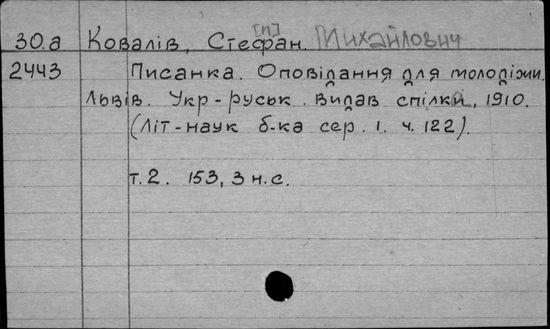 30.а Ковалів, Стефан. [п] Михайлович
2443 Писанка. Оповідання для молодіжи.
Львів. Укр-руськ. видав спілка, 1910.
(Літ-наук б-ка сер. 1. ч. 122).
т. 2. 153, 3 н.с.